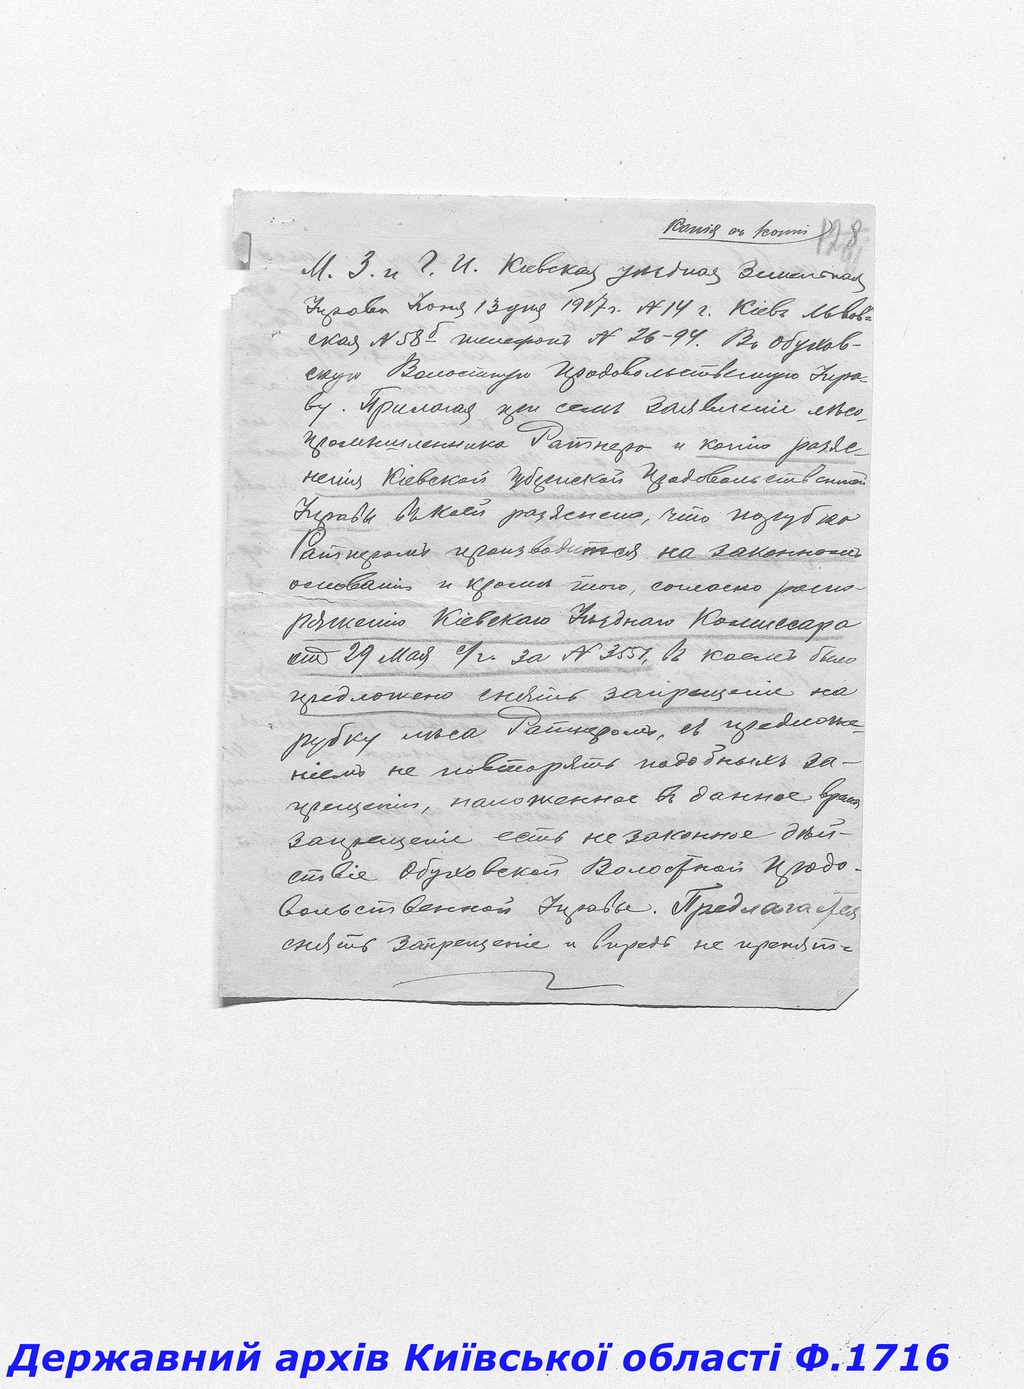 Копія съ копіи
128
М. З. и Г. И. Кіевская уѣздная Земельная
Управа Іюня 13 дня 1917 г. № 14 г. Кіевъ Львов-
ская № 58б телефонъ № 26-94. Въ Обухов-
скую Волостную Продовольственную Упра-
ву. Прилагая при семъ заявленіе лѣсо-
промышленника Ратнера и копію разъяс-
ненія Кіевской Губернской Продовольственной
Управы въ коей разъяснено, что порубка
Ратнеромъ производится на законномъ
основаніи и кромѣ того, согласно распо-
ряженію Кіевскаго Уѣзднаго Комиссара
отъ 29 Мая с/г. за № 3551, въ коемъ было
предложено снять запрещеніе на
рубку лѣса Ратнеромъ, съ предложе-
ніемъ не повторять подобныхъ за-
прещеній, наложенное въ данное время
запрещеніе есть не законное дѣй-
ствіе Обуховской Волостной Продо-
вольственной Управы. Предлагается
снять запрещеніе и впредь не препят-
Державний архів Київської області Ф.1716